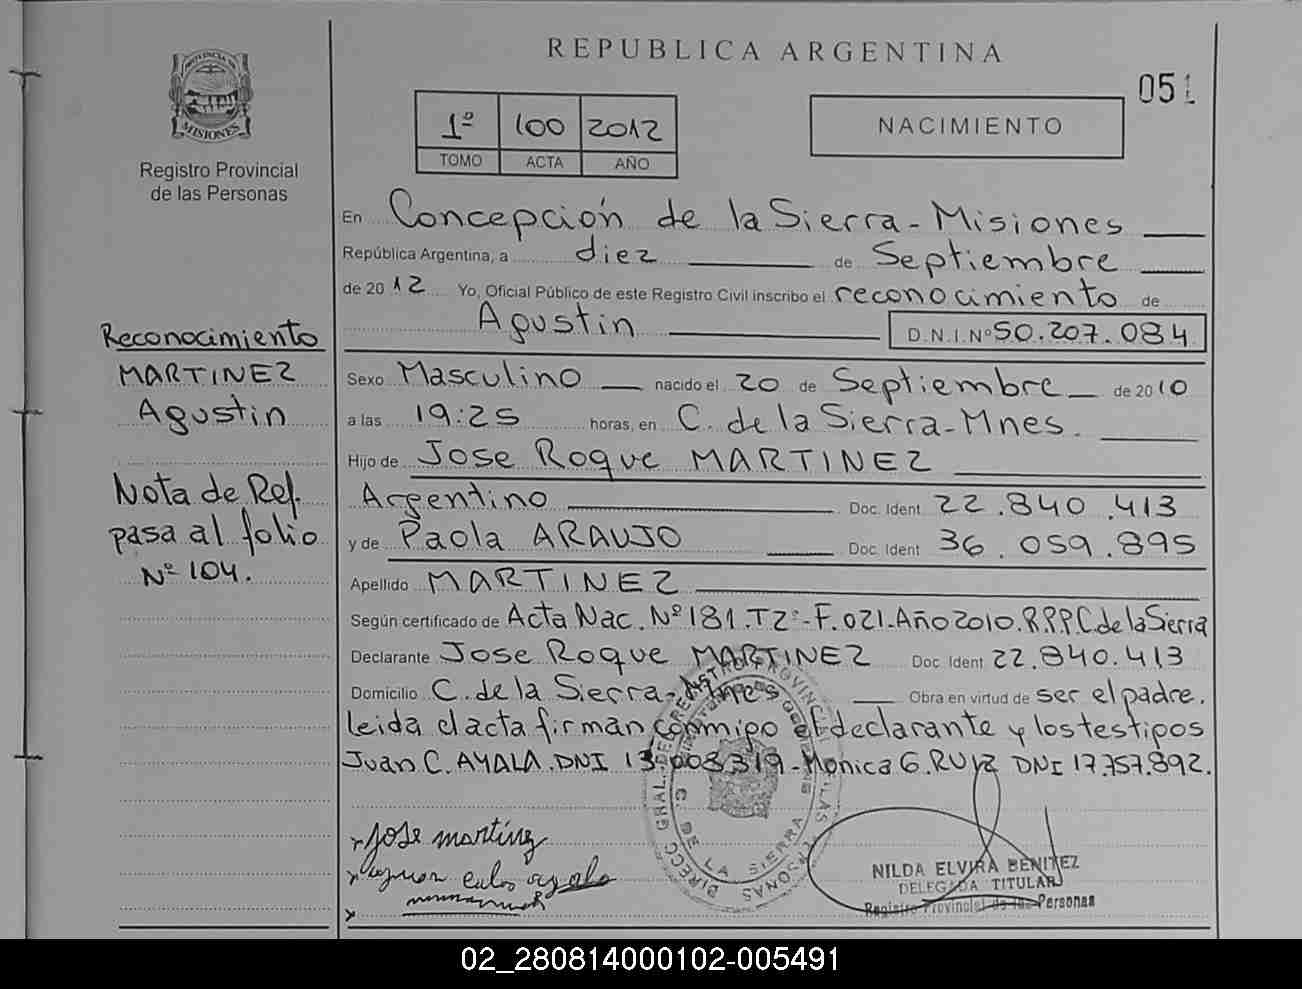 REPUBLICA ARGENTINA
051
PROVINCIA DE
MISIONES
Registro Provincial
de las Personas
1º 100 2012
TOMO ACTA AÑO
NACIMIENTO
En Concepción de la Sierra - Misiones
República Argentina, a diez de Septiembre
de 2012 Yo, Oficial Público de este Registro Civil inscribo el reconocimiento de
Agustin D.N.I.Nº 50.207.084
Reconocimiento
MARTINEZ
Agustin
Nota de Ref.
pasa al folio
Nº 104.
Sexo Masculino nacido el 20 de Septiembre de 2010
a las 19:25 horas, en C. de la Sierra - Mnes.
Hijo de Jose Roque MARTINEZ
Argentino Doc. Ident 22.840.413
y de Paola ARAUJO Doc. Ident 36.059.895
Apellido MARTINEZ
Según certificado de Acta Nac. Nº 181.T2º-F.021.Año 2010.R.P.P.C de la Sierra
Declarante Jose Roque MARTINEZ Doc. Ident 22.840.413
Domicilio C. de la Sierra - Mnes Obra en virtud de ser el padre.
leida el acta firman conmigo el declarante y los testigos
Juan C. AYALA. DNI 13.008.319 - Monica G. RUIZ DNI 17.757.892.
Jose martinez
ayala
DIRECC. GRAL. DE REGISTRO PROVINCIAL DE LAS PERSONAS
C. DE LA SIERRA
NILDA ELVIRA BENITEZ
DELEGADA TITULAR
Registro Provincial de las Personas
02_280814000102-005491